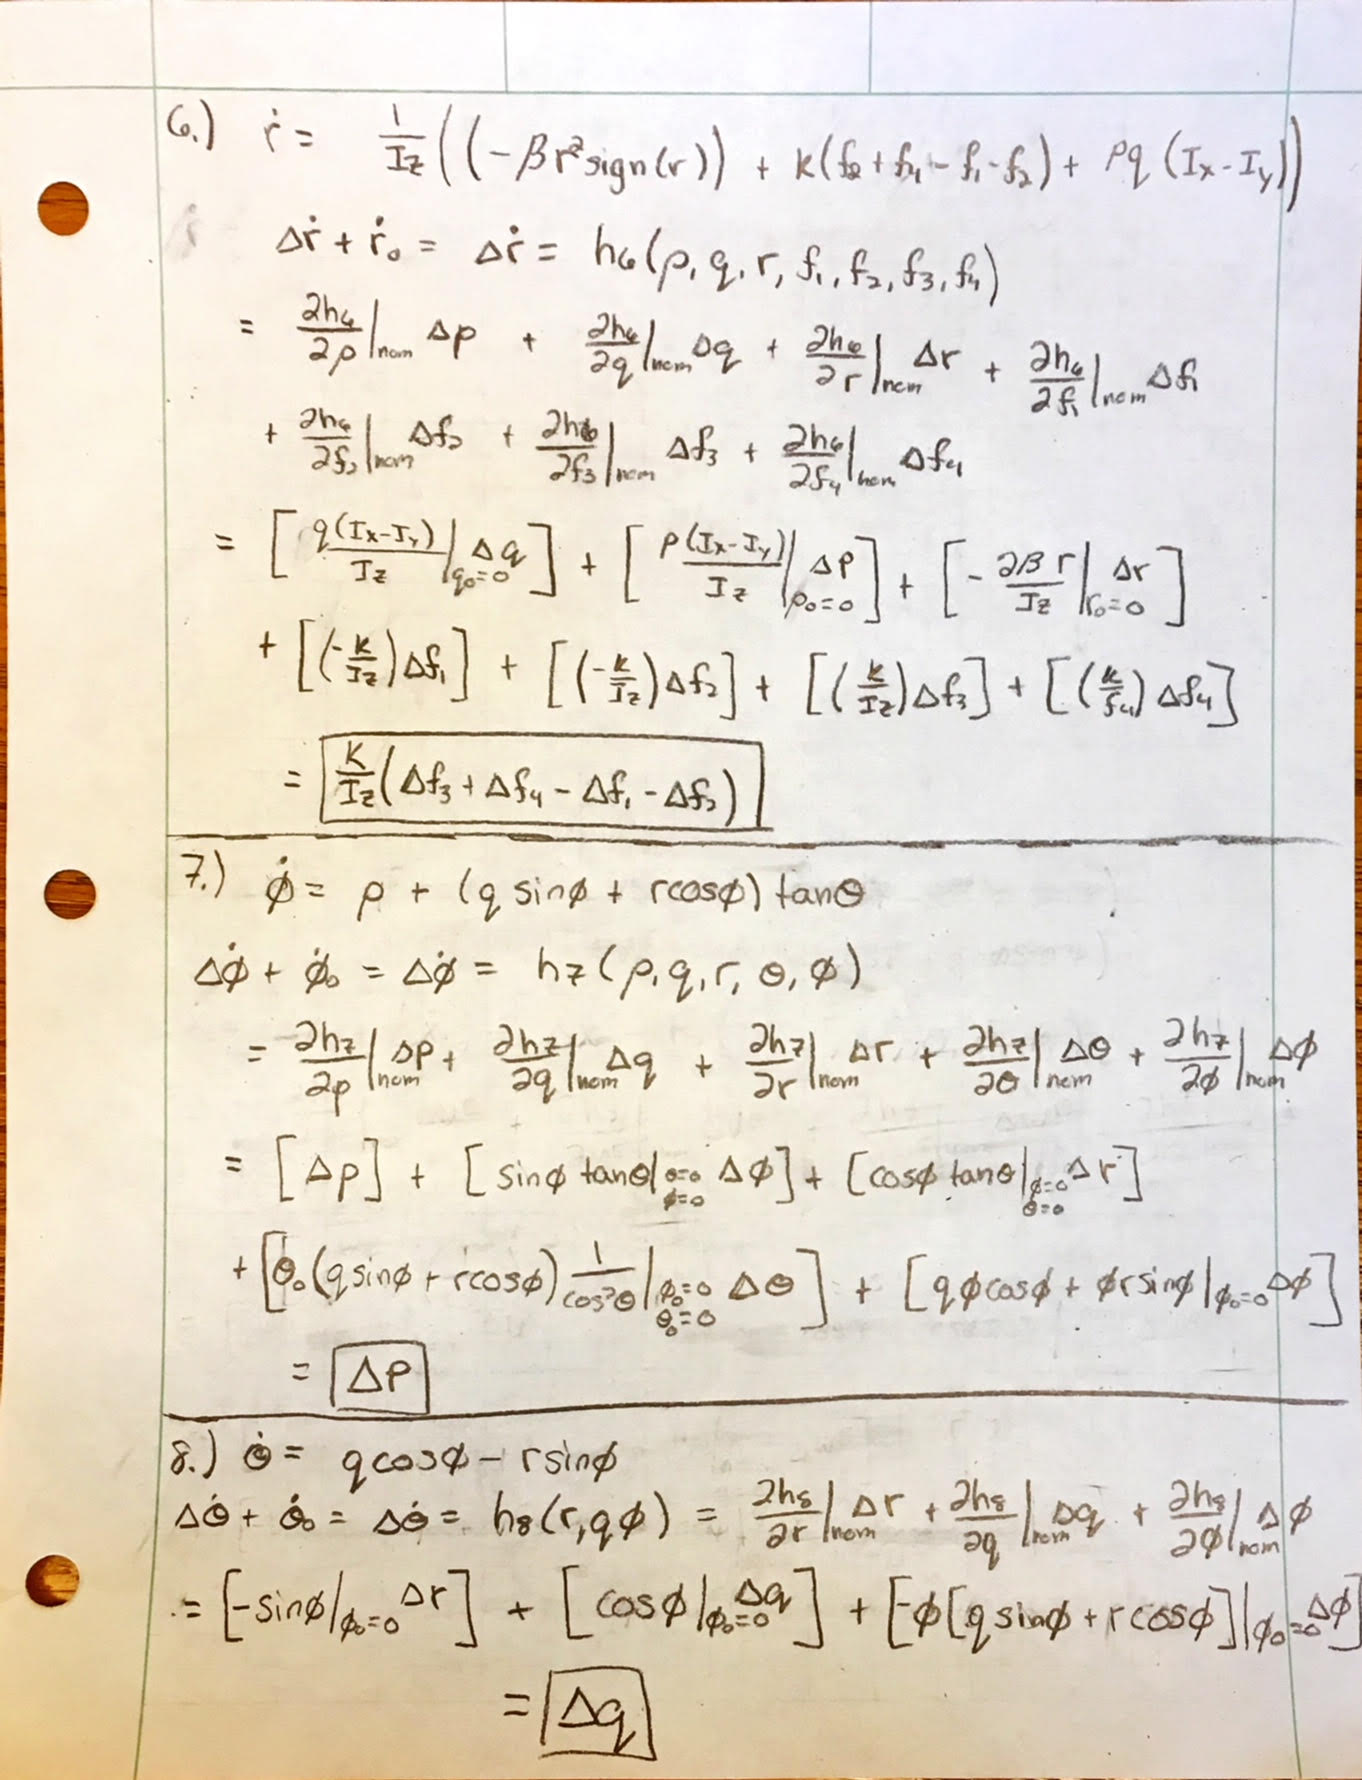 6.) ṙ = 1/Iz((-βr²sign(r)) + k(f2+f4-f1-f2) + pq(Ix-Iy))
Δṙ + ṙ₀ = Δṙ = h6(p, q, r, f1, f2, f3, f4)
= ∂h6/∂p|nom Δp + ∂h6/∂q|nom Δq + ∂h6/∂r|nom Δr + ∂h6/∂f1|nom Δf1
+ ∂h6/∂f2|nom Δf2 + ∂h6/∂f3|nom Δf3 + ∂h6/∂f4|nom Δf4
= [q(Ix-Iy)/Iz|q₀=0 Δq] + [p(Ix-Iy)/Iz|p₀=0 Δp] + [-2βr/Iz|r₀=0 Δr]
+ [(-k/Iz)Δf1] + [(-k/Iz)Δf2] + [(k/Iz)Δf3] + [(k/f4)Δf4]
= k/Iz(Δf3 + Δf4 - Δf1 - Δf2)
7.) φ̇ = p + (q sinφ + rcosφ) tanθ
Δφ̇ + φ̇₀ = Δφ̇ = h7(p, q, r, θ, φ)
= ∂h7/∂p|nom Δp + ∂h7/∂q|nom Δq + ∂h7/∂r|nom Δr + ∂h7/∂θ|nom Δθ + ∂h7/∂φ|nom Δφ
= [Δp] + [sinφ tanθ|θ=0 φ=0 Δφ] + [cosφ tanθ|φ=0 θ=0 Δr]
+ [θ₀(qsinφ + rcosφ) 1/cos²θ|φ₀=0 θ₀=0 Δθ] + [qφcosφ + φrsinφ|φ₀=0 Δφ]
= Δp
8.) θ̇ = qcosφ - rsinφ
Δθ̇ + θ̇₀ = Δθ̇ = h8(r, qφ) = ∂h8/∂r|nom Δr + ∂h8/∂q|nom Δq + ∂h8/∂φ|nom Δφ
= [-sinφ|φ₀=0 Δr] + [cosφ|φ₀=0 Δq] + [-φ[qsinφ + rcosφ]|φ₀=0 Δφ]
= Δq